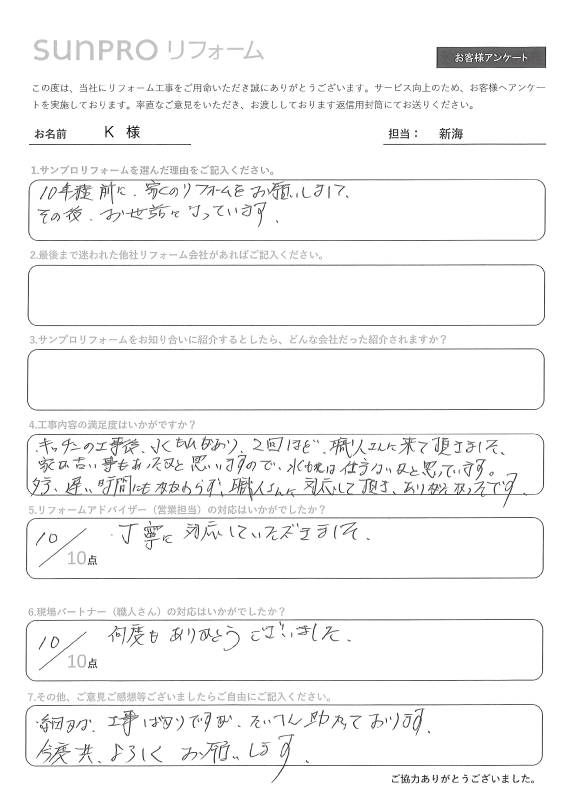 SUNPRO リフォーム
お客様アンケート
この度は、当社にリフォーム工事をご用命いただき誠にありがとうございます。サービス向上のため、お客様へアンケー
トを実施しております。率直なご意見をいただき、お渡ししております返信用封筒にてお送りください。
お名前 K 様
担当： 新海
1.サンプロリフォームを選んだ理由をご記入ください。
10年程前に、家のリフォームをお願いしまして、
その後、お世話になっています。
2.最後まで迷われた他社リフォーム会社があればご記入ください。
3.サンプロリフォームをお知り合いに紹介するとしたら、どんな会社だった紹介されますか？
4.工事内容の満足度はいかがですか？
キッチンの工事後、水もれがあり、2回ほど、職人さんに来て頂きました、
家が古い事もあったかと思いますので、水もれは仕方ないかと思っています。
夕方、遅い時間にもかかわらず、職人さんに対応して頂き、ありがたかったです。
5.リフォームアドバイザー（営業担当）の対応はいかがでしたか？
10/10点 丁寧に対応していただきました。
6.現場パートナー（職人さん）の対応はいかがでしたか？
10/10点 何度もありがとうございました。
7.その他、ご意見ご感想等ございましたらご自由にご記入ください。
細かな、工事ばかりですが、たいへん助かっております。
今度共、よろしくお願いします。
ご協力ありがとうございました。